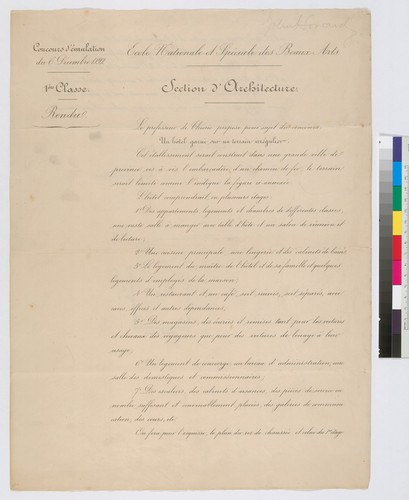 Concours d'émulation
du 6 Décembre 1892
Ecole Nationale et Spéciale des Beaux-Arts
1ère Classe
Section d'Architecture
Rendu
Le professeur de Théorie propose pour sujet de concours
Un hôtel garni sur un terrain irrégulier
Cet établissement serait construit dans une grande ville de
province vis à vis l'embarcadère d'un chemin de fer, le terrain
serait limité comme l'indique la figure
L'hôtel comprendrait en plusieurs étages
1° Des appartements, logements et chambres de différentes classes,
une vaste salle à manger avec table d'hôte et un salon de réunion et
de lecture;
2° Une cuisine principale, une lingerie et des cabinets de bains
3° Le logement du maître de l'hôtel et de sa famille et quelques
logements d'employés de la maison
4° Un restaurant et un café, soit réunis, soit séparés, avec
leurs offices et autres dépendances,
5° Des magasins, des écuries et remises tant pour les voitures
et chevaux des voyageurs que pour des voitures de louage à leur
usage;
6° Un logement de concierge, un bureau d'administration, une
salle des domestiques et commissionnaires;
7° Des escaliers, des cabinets d'aisances, des pièces de service en
nombre suffisant et convenablement placées, des galeries de communi-
cation, des cours, etc.
On fera pour l'esquisse, le plan du rez de chaussée et celui du 1er étage